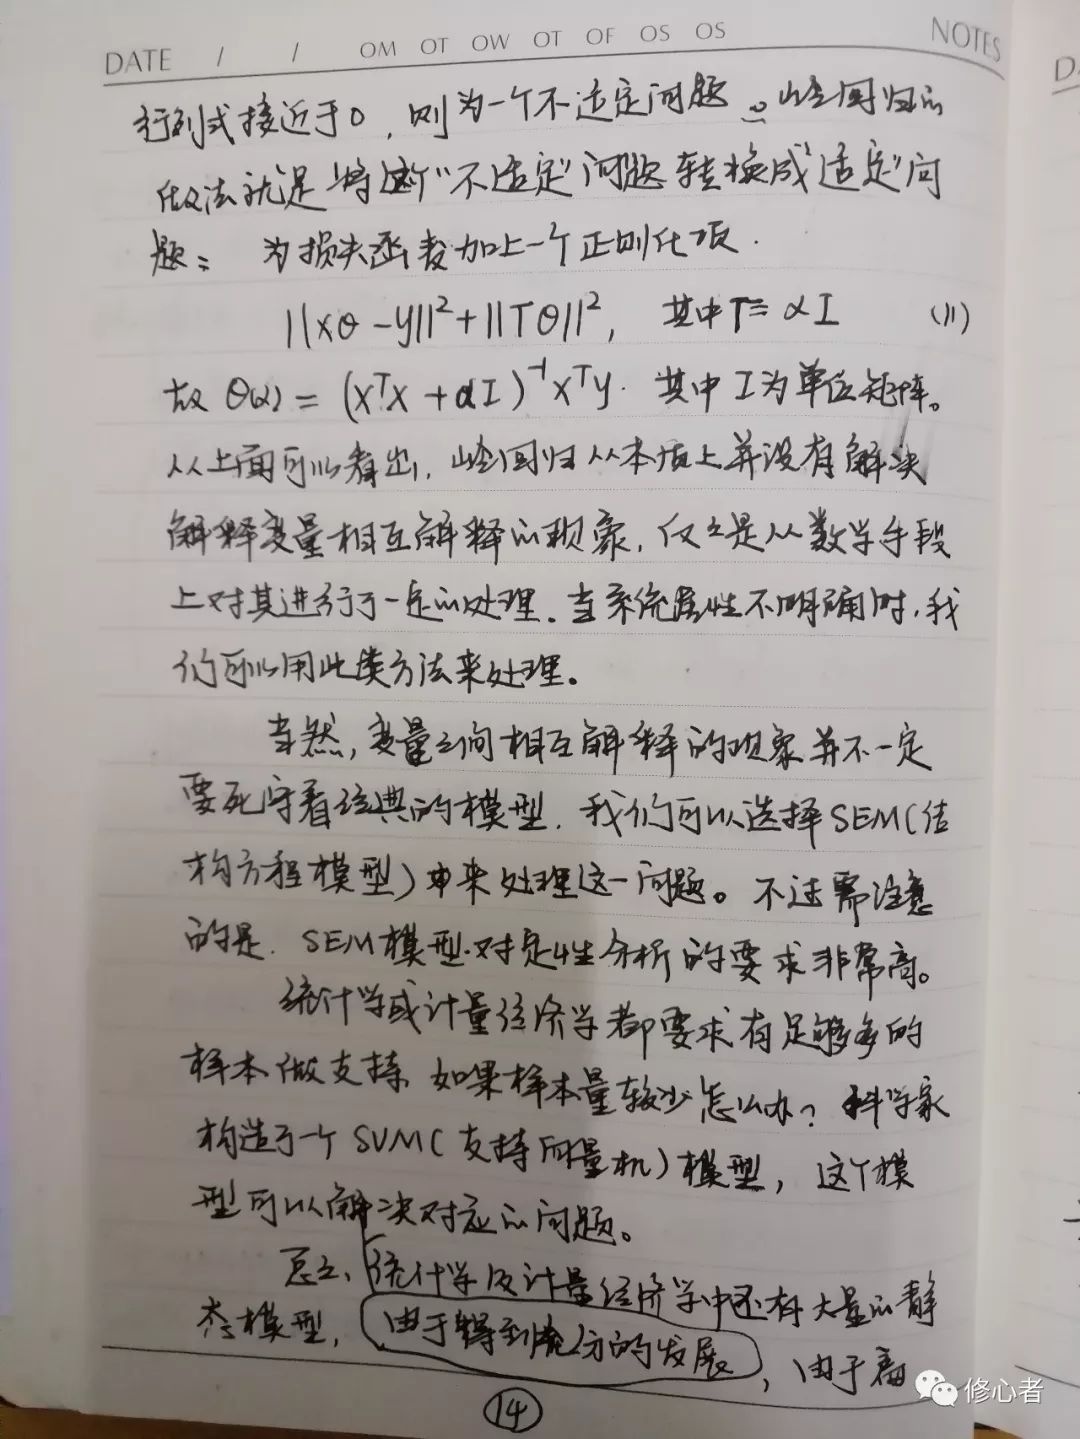 DATE / / OM OT OW OT OF OS OS NOTES
行列式接近于0，则为一个不适定问题。岭回归的
做法就是将这个"不适定"问题转换成"适定"问
题：为损失函数加上一个正则化项.
||xθ-y||²+||Tθ||², 其中T=αI (11)
故θ(α)=(xᵀx+αI)⁻¹xᵀy. 其中I为单位矩阵。
从上面可以看出，岭回归从本质上并没有解决
解释变量相互解释的现象，仅仅是从数学手段
上对其进行了一定的处理。当系统属性不明确时，我
们可以用此类方法来处理。
当然，变量之间相互解释的现象并不一定
要死守着经典的模型，我们可以选择SEM(结
构方程模型)来处理这一问题。不过需注意
的是，SEM模型对定性分析的要求非常高。
统计学或计量经济学都要求有足够多的
样本做支持，如果样本量较少怎么办？科学家
构造了一个SVM(支持向量机)模型，这个模
型可以解决对应的问题。
总之，统计学及计量经济学中还有大量的静
态模型，由于得到充分的发展，由于篇
14
修心者